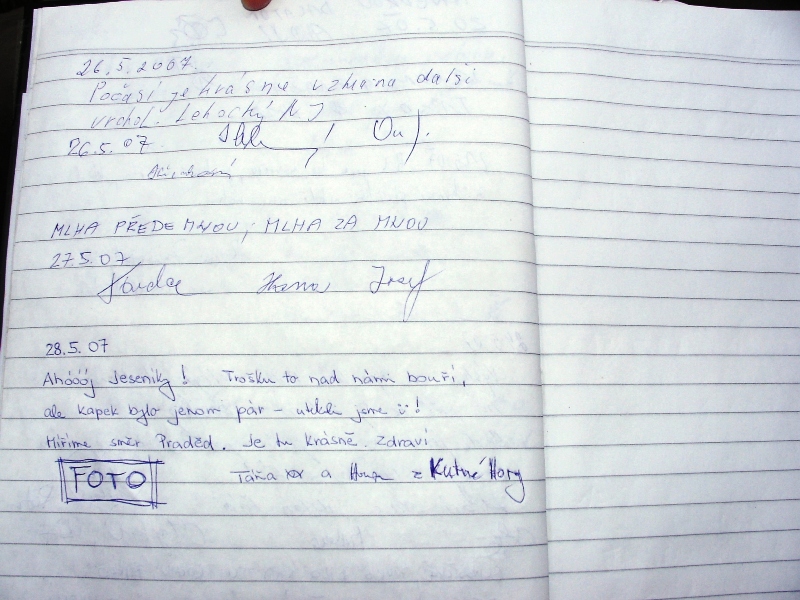 26.5.2007.
Počasí je krásne vzhůru na další
vrchol. Lehocký
26.5.07
MLHA PŘEDE MNOU, MLHA ZA MNOU
27.5.07
Hana Josef
28.5.07
Ahóóój Jeseníky! Trošku to nad námi bouří,
ale kapek bylo jenom pár - utekli jsme !
Míříme směr Praděd. Je tu krásně. Zdraví
FOTO Táňa a z Kutné Hory